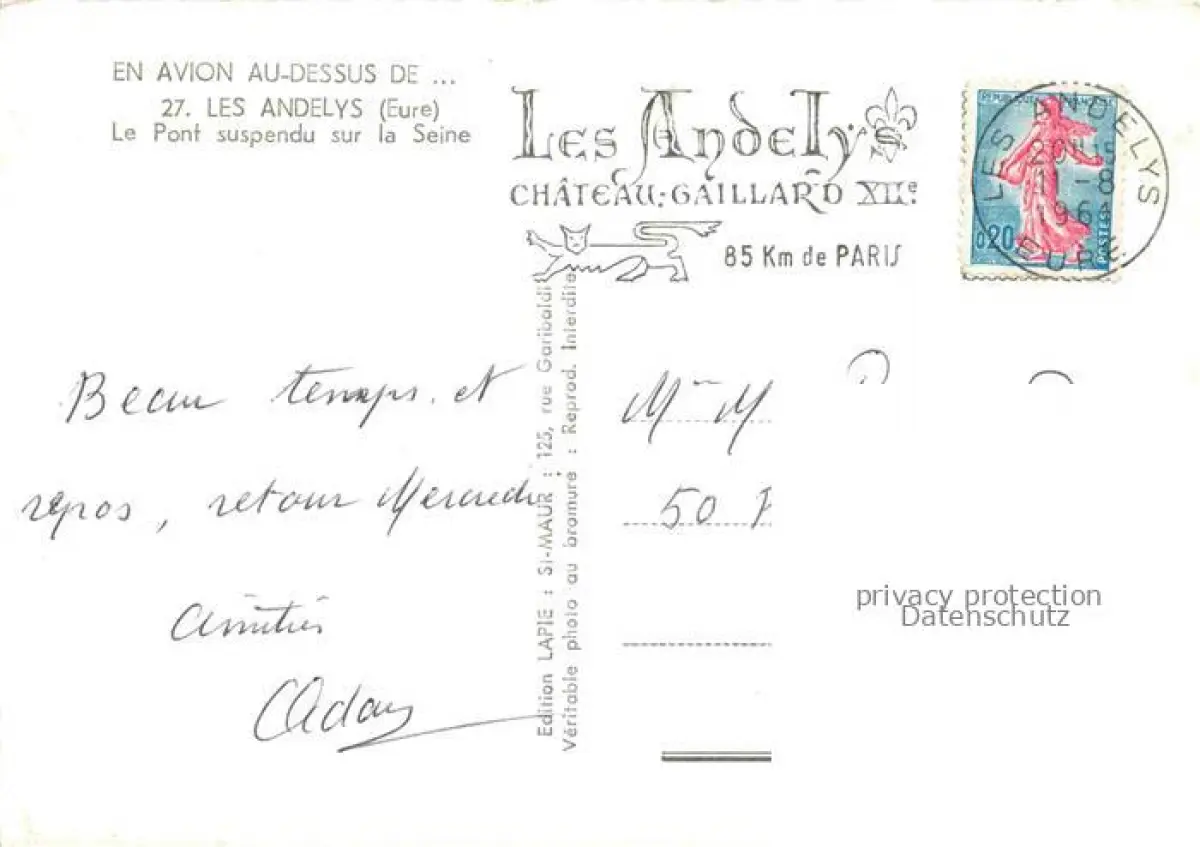 EN AVION AU-DESSUS DE ...
27. LES ANDELYS (Eure)
Le Pont suspendu sur la Seine
Les Andelys
CHÂTEAU-GAILLARD XIIe.
85 Km de PARIS
LES ANDELYS
EURE
0,20
POSTES
Beau temps et
repos, retour Mercredi
amitiés
Edition LAPIE : St-MAUR : 125, rue Garibaldi
Véritable photo au bromure : Reprod. Interdite
M
50
privacy protection
Datenschutz